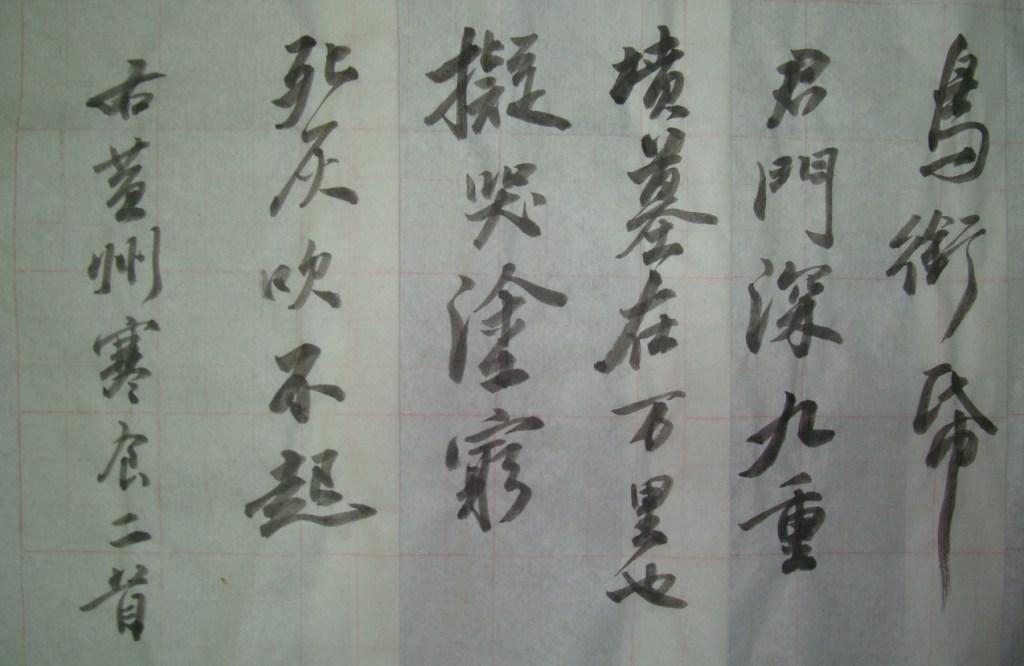 烏銜帋
君門深九重
墳墓在万里也
擬哭塗窮
死灰吹不起
右黃州寒食二首